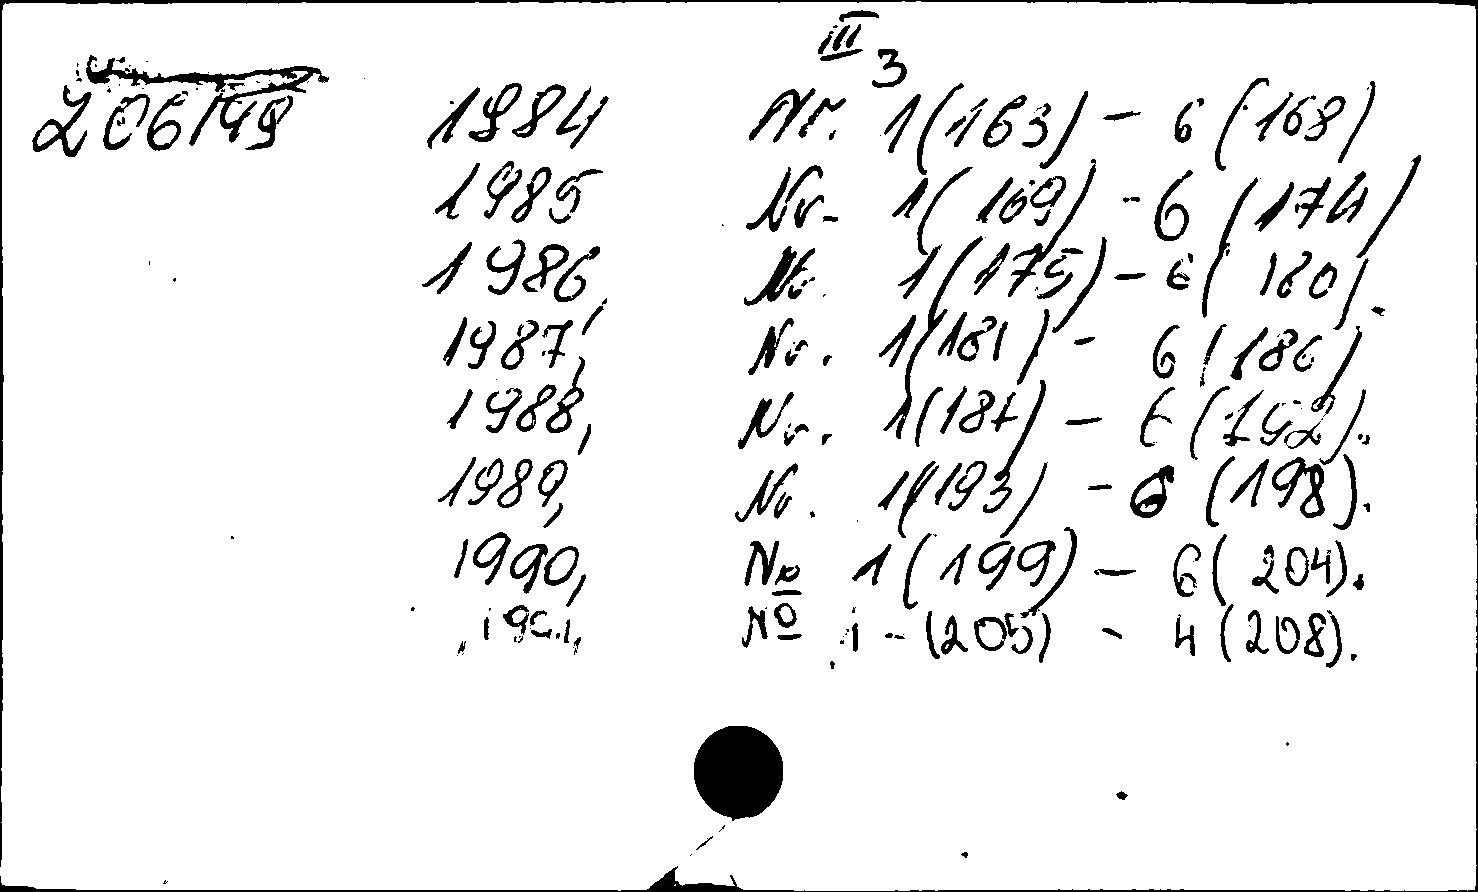 III 3
206149 1984 Nr. 1(163) – 6(168)
1985 Nr. 1(169) - 6(174)
1986, Nr. 1(175) – 6(180).
1987, Nr. 1(181) - 6(186)
1988, Nr. 1(187) – 6(192).
1989, Nr. 1(193) - 6(198).
1990, № 1(199) – 6(204).
1991, № 1-(205) - 4(208).